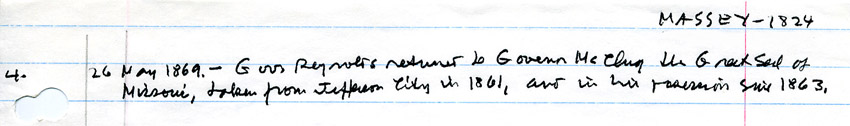 MASSEY-1824
4. 26 May 1869. - Gov Reynolds returned to Governor McClurg the Great Seal of
Missouri, taken from Jefferson City in 1861, and in his possession since 1863.